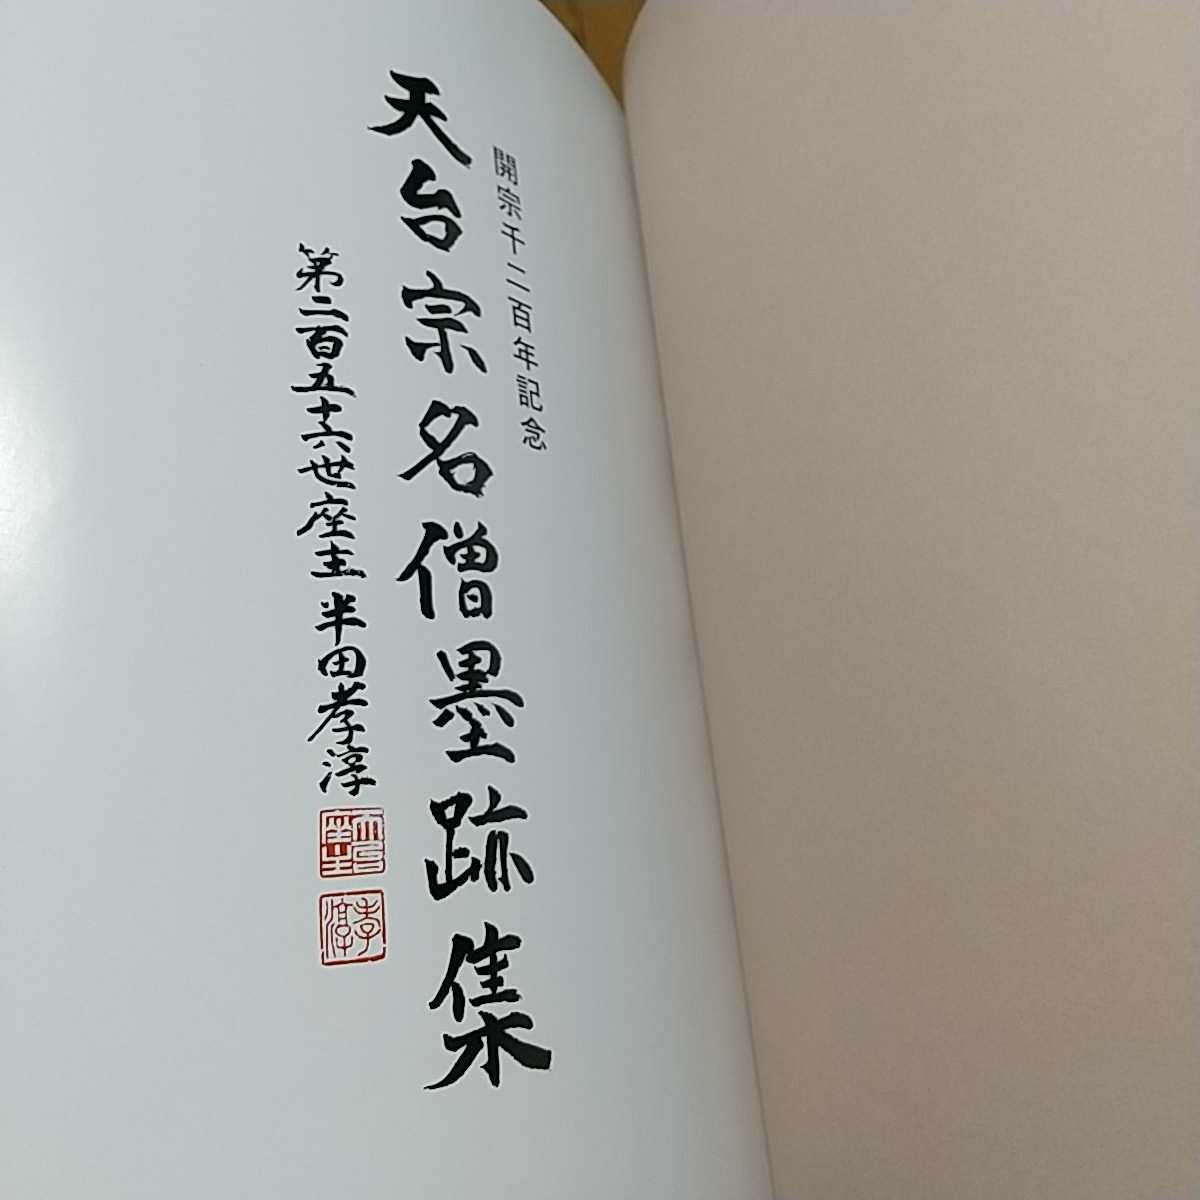 開宗千二百年記念
天台宗名僧墨跡集
第二百五十六世座主半田孝淳
天台座主
孝淳